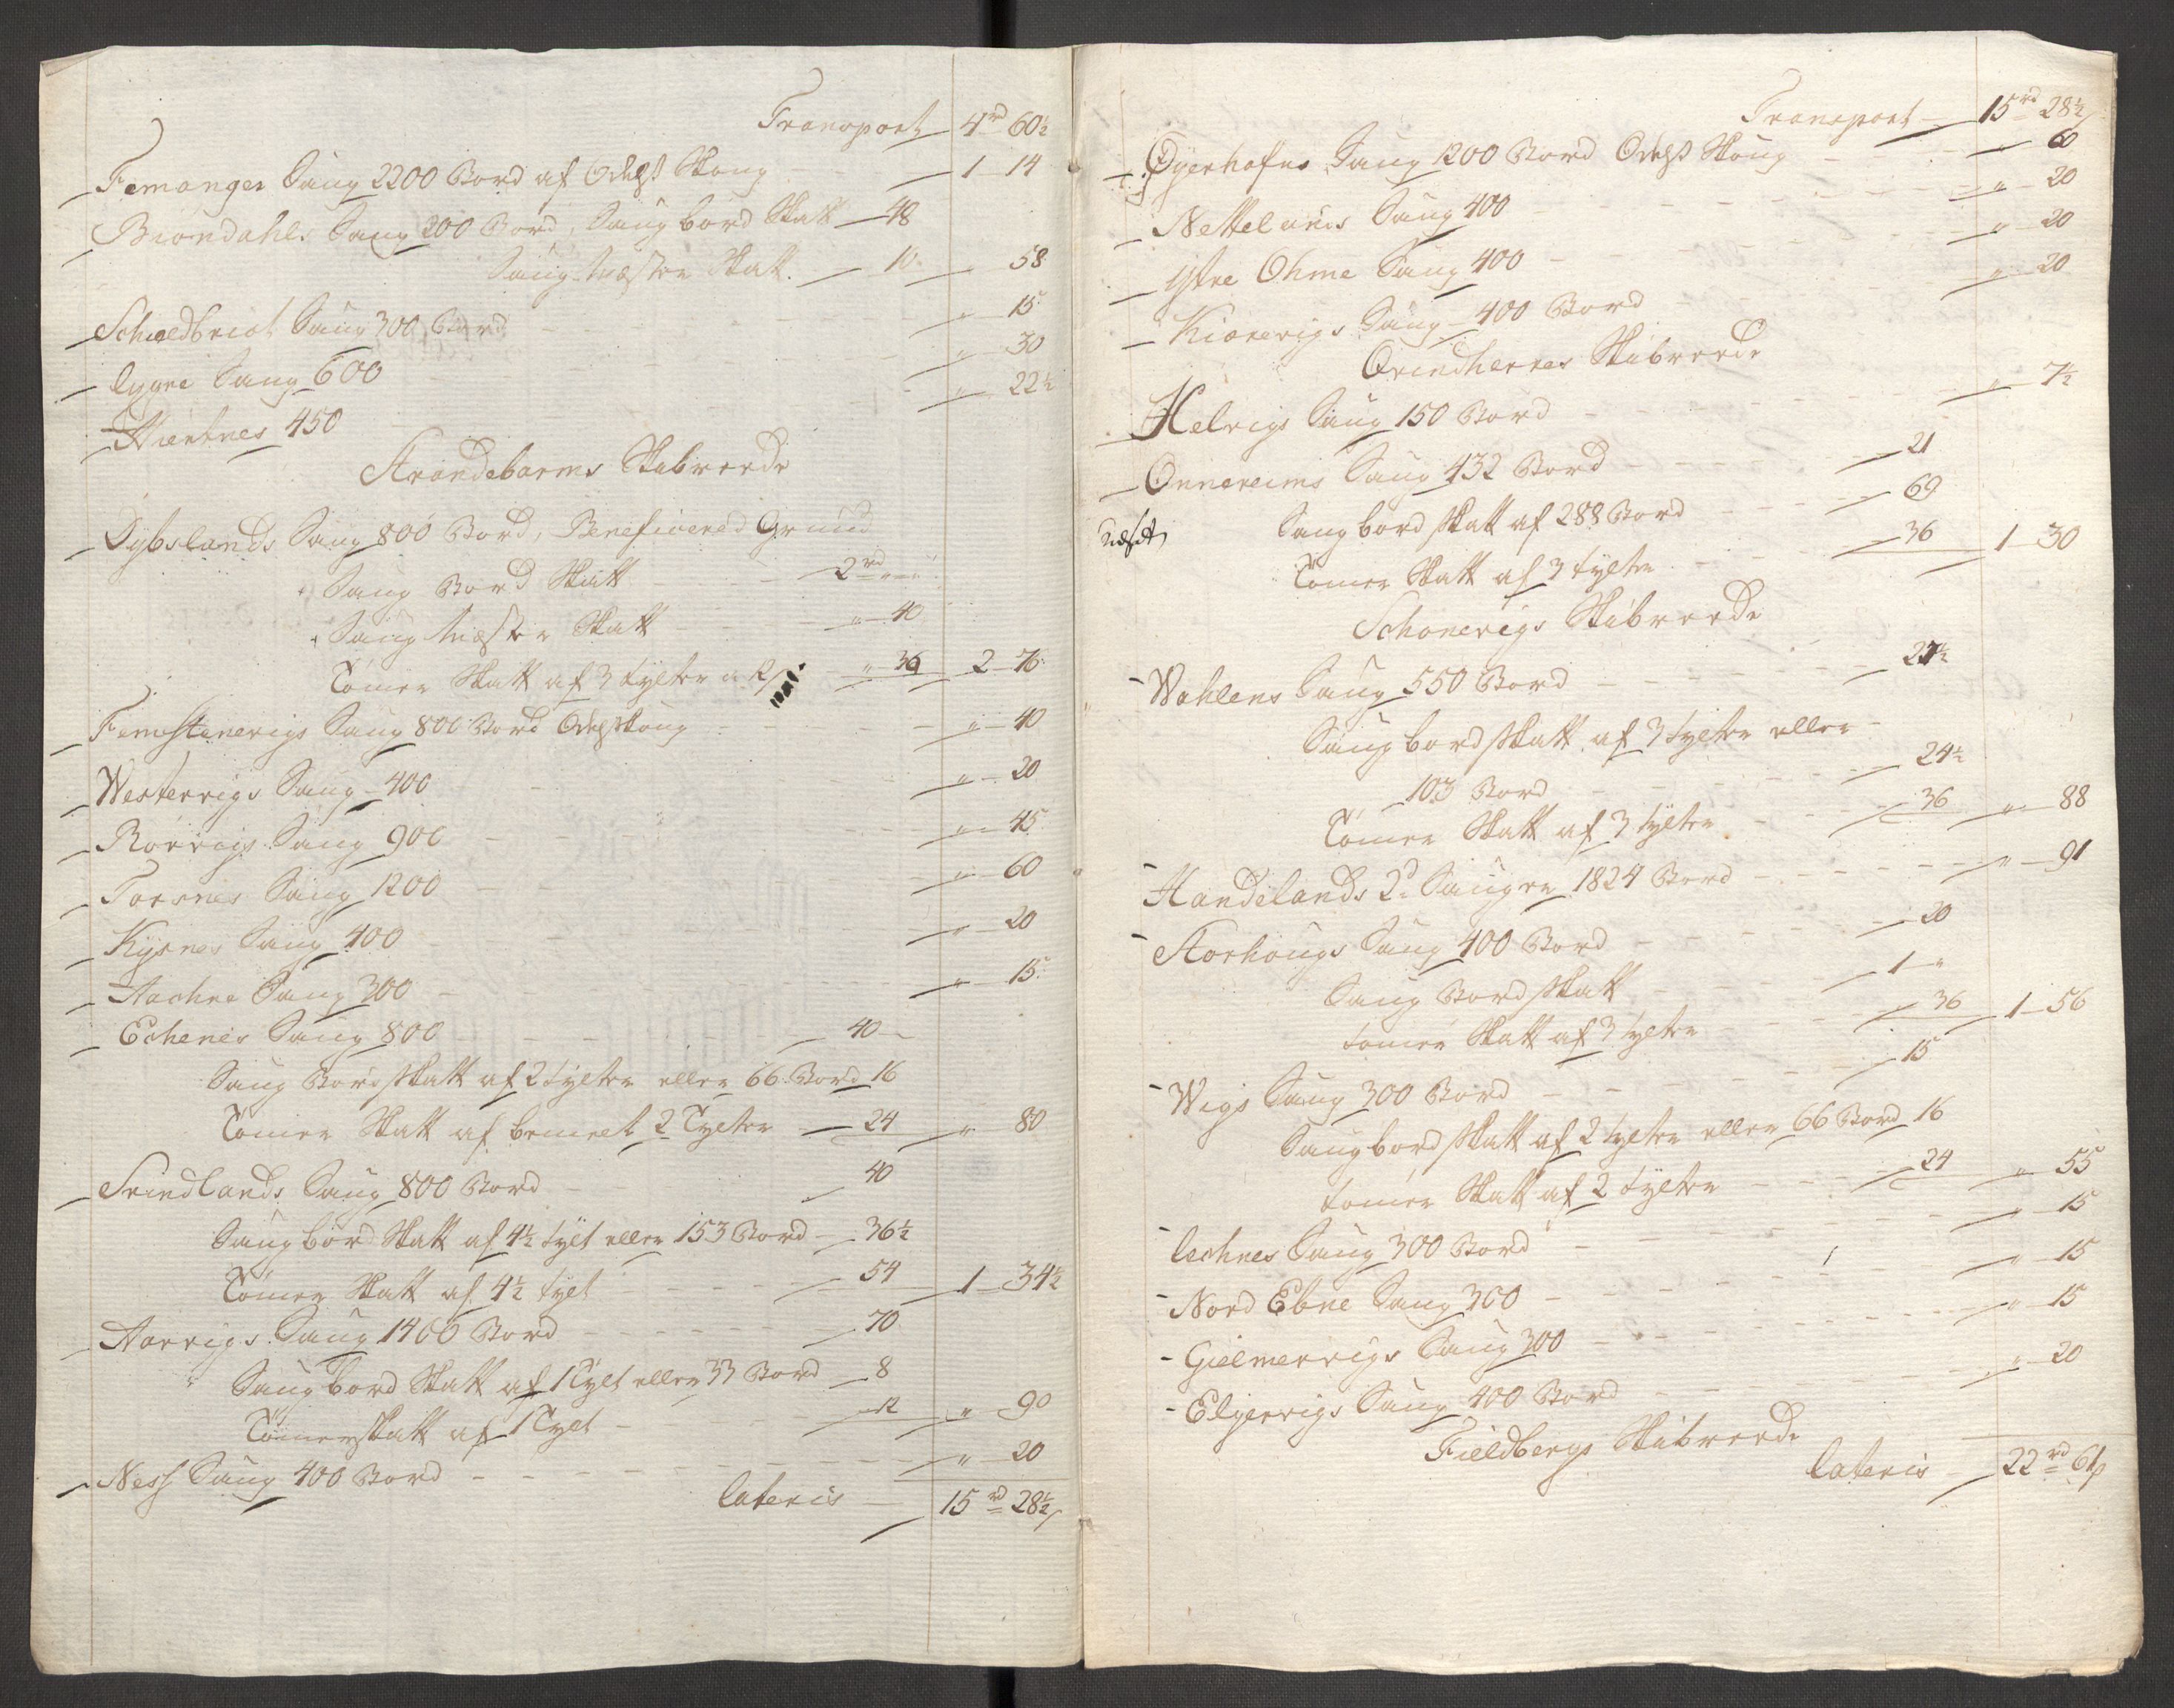 Transport 4 rd 60½
Femanger Saug 2200 Bord af Odelss Skoug 1 14
Biørndahls Saug 200 Bord, Saugbord Skatt 48
Saug Mæster Skatt 10 " 58
Schieldbriot Saug 300 Bord " 15
Lygre Saug 600 " 30
Hientnes 450 " 22½
Strandebarms Skibreede
Dybslands Saug 800 Bord, Beneficeered Grund
Saug Bord Skatt 2 rd " "
Saug Mæster Skatt " 40
Tømer Skatt af 3 tylter a 12 s " 36 2 76
Femstenevigs Saug 800 Bord Odelsskoug " 40
Westervigs Saug 400 " 20
Rørvigs Saug 900 " 45
Torsnes Saug 1200 " 60
Kysnes Saug 400 " 20
Aachre Saug 300 " 15
Echenes Saug 800 40
Saug Bordskatt af 2 tylter eller 66 Bord 16
Tømer Skatt af bemelt 2 Tylter 24 " 80
Sundlands Saug 800 Bord 40
Saugbord Skatt af 4½ tylt eller 153 Bord 36½
Tømer Skatt af 4½ tylt 54 1 34½
Aarvigs Saug 1400 Bord 70
Saugbord Skatt af 1 Tylt eller 33 Bord 8
Tømmerskatt af 1 Tylt 12 " 90
Ness Saug 400 Bord " 20
Lateris 15 rd 28½ s
Transport 15 rd 28½ s
Øyerhafns Saug 1200 Bord Odelss Skoug " 60
Nettelands Saug 400 " 20
Ystre Ohme Saug 400 " 20
Kiærevigs Saug 400 Bord " 20
Qvindherres Skibreede
Helvigs Saug 150 Bord " 7½
Onnereims Saug 432 Bord 21
Saugbord skatt af 288 Bord 69
Tømer Skatt af 3 tylter 36 1 30
Schonevigs Skibreede
Wahlens Saug 550 Bord 27½
Saugbordskatt af 3 tylter eller
103 Bord 24½
Tømer Skatt af 3 tylter 36 " 88
Handelands 2de Sauger 1824 Bord " 91
Storhougs Saug 400 Bord 20
Saug Bordskatt 1 "
tømer Skatt af 3 tylter 36 1 56
Wigs Saug 300 Bord 15
Saugbordskatt af 2 tylter eller 66 Bord 16
tømer Skatt af 2 tylter 24 " 55
Lechnes Saug 300 Bord " 15
Nord Ebne Saug 300 " 15
Gielmervigs Saug 300 " 15
Elgervigs Saug 400 Bord " 20
Fieldbergs Skibreede
Lateris 22 rd 61 s